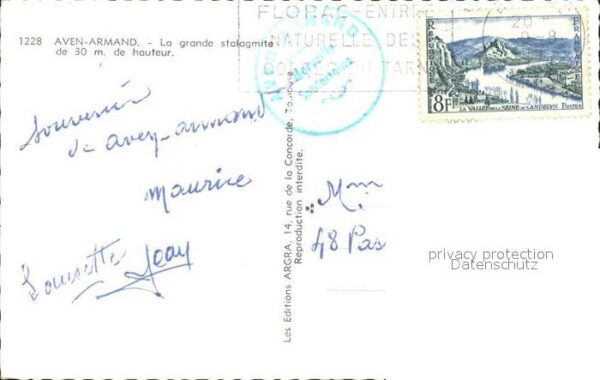 1228 AVEN-ARMAND. - La grande stalagmite
de 30 m. de hauteur.
FLORAC-ENTRÉE
NATURELLE DES
GORGES DU TARN
AVEN ARMAND
Merveille
Souterraine
20 -
REPUBLIQUE FRANÇAISE
8F
LA VALLEE DE LA SEINE AUX ANDELYS
Souvenir
de aven-armand
Maurice
Lousette Jean
Les Editions ARGRA, 14, rue de la Concorde, Toulouse
Reproduction interdite.
Mme
48 Pas
privacy protection
Datenschutz